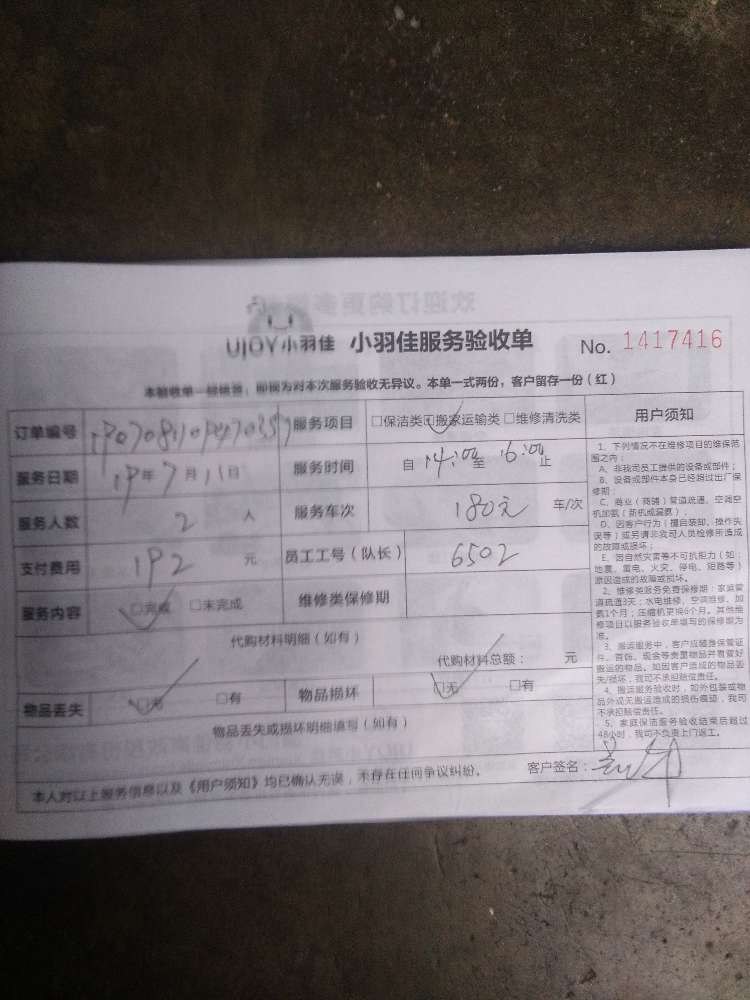 UJOY小羽佳 小羽佳服务验收单 No. 1417416
本验收单一经核签,即视为对本次服务验收无异议。本单一式两份,客户留存一份(红)
订单编号 服务项目 □保洁类 ☑搬家运输类 □维修清洗类
服务日期 19年7月11日 服务时间 自 14:00 至 16:00 止
服务人数 2 人 服务车次 180元 车/次
支付费用 192 元 员工工号(队长) 6502
服务内容 ☑完成 □未完成 维修类保修期
代购材料明细(如有)
代购材料总额: 元
物品丢失 ☑无 □有 物品损坏 ☑无 □有
物品丢失或损坏明细填写(如有)
本人对以上服务信息以及《用户须知》均已确认无误,不存在任何争议纠纷。 客户签名:
用户须知
1、下列情况不在维修项目的维保范
围之内:
A、非我司员工提供的设备或部件;
B、设备或部件本身已经超过出厂保
修期;
C、商业(商铺)管道疏通、空调空
机加氨(新机或漏氨);
D、因客户行为(擅自装卸、操作失
误等)或另请非我司人员检修所造成
的故障或损坏;
E、因自然灾害等不可抗拒力(如:
地震、雷电、火灾、停电、短路等)
原因造成的故障或损坏。
2、维修类服务免费保修期:家庭管
道疏通3天;水电维修、空调维修、加
氨1个月;压缩机更换6个月。其他维
修项目以服务验收单填写的保修期为
准。
3、搬运服务中,客户应随身保管证
件、首饰、现金等贵重物品并看管好
搬运的物品。如因客户造成的物品丢
失/损坏,我司不承担赔偿责任。
4、搬运服务验收时,如外包装或物
品外观无搬运造成的损伤痕迹,我司
不承担赔偿责任。
5、家庭保洁服务验收结束后超过
48小时,我司不负责上门返工。